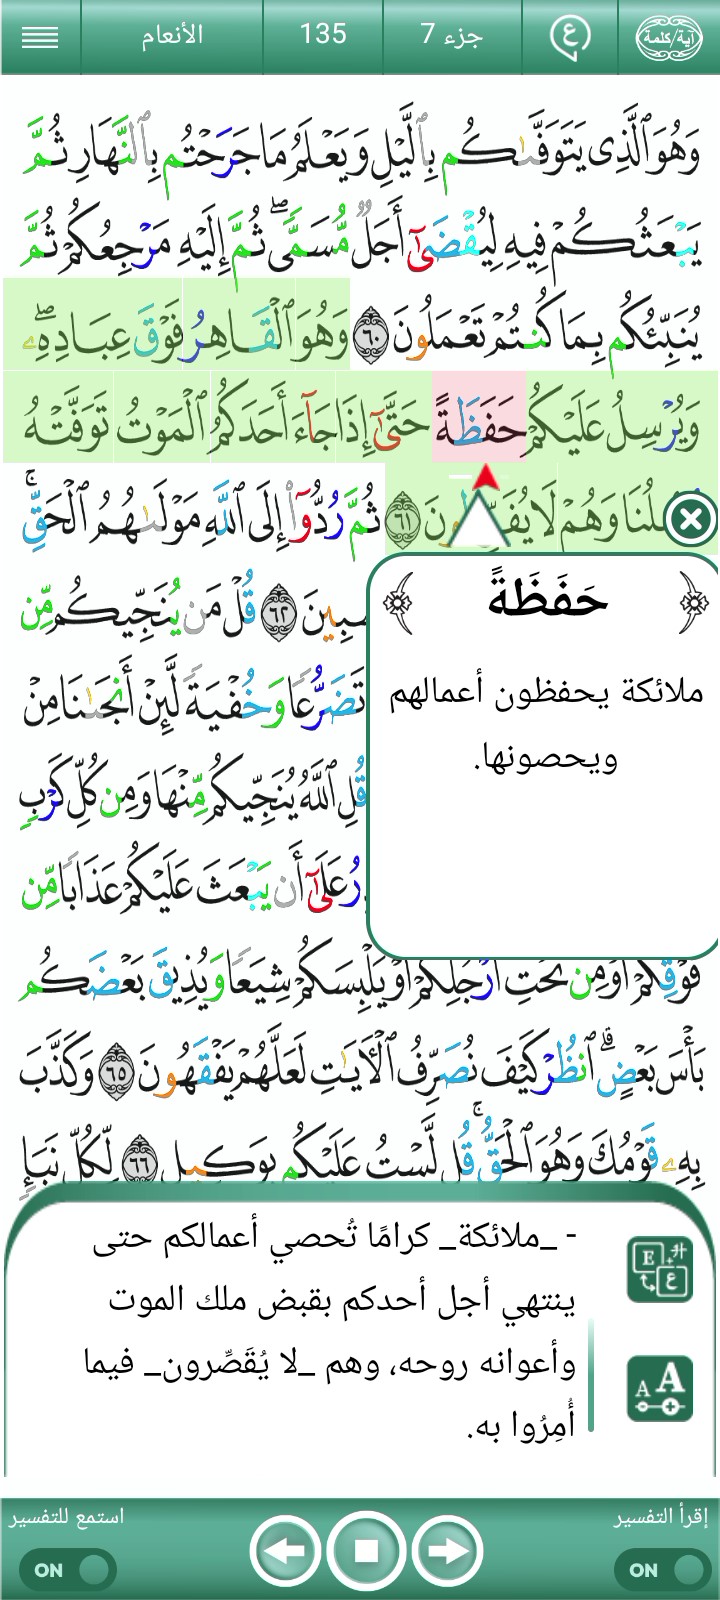 آية/كلمة ع جزء 7 135 الأنعام
وَهُوَ ٱلَّذِى يَتَوَفَّىٰكُم بِٱلَّيْلِ وَيَعْلَمُ مَا جَرَحْتُم بِٱلنَّهَارِ ثُمَّ
يَبْعَثُكُمْ فِيهِ لِيُقْضَىٰٓ أَجَلٌ مُّسَمًّى ۖ ثُمَّ إِلَيْهِ مَرْجِعُكُمْ ثُمَّ
يُنَبِّئُكُم بِمَا كُنتُمْ تَعْمَلُونَ ٦٠ وَهُوَ ٱلْقَاهِرُ فَوْقَ عِبَادِهِۦ ۖ
وَيُرْسِلُ عَلَيْكُمْ حَفَظَةً حَتَّىٰٓ إِذَا جَآءَ أَحَدَكُمُ ٱلْمَوْتُ تَوَفَّتْهُ
وَهُمْ لَا ٦١ ثُمَّ رُدُّوٓا۟ إِلَى ٱللَّهِ مَوْلَىٰهُمُ ٱلْحَقِّ ۚ
٦٢ قُلْ مَن يُنَجِّيكُم مِّن
تَضَرُّعًا وَخُفْيَةً لَّئِنْ أَنجَىٰنَا مِنْ
قُلِ ٱللَّهُ يُنَجِّيكُم مِّنْهَا وَمِن كُلِّ كَرْبٍ
عَلَىٰٓ أَن يَبْعَثَ عَلَيْكُمْ عَذَابًا مِّن
فَوْقِكُمْ أَوْ مِن تَحْتِ أَرْجُلِكُمْ أَوْ يَلْبِسَكُمْ شِيَعًا وَيُذِيقَ بَعْضَكُم
بَأْسَ بَعْضٍ ۗ ٱنظُرْ كَيْفَ نُصَرِّفُ ٱلْءَايَٰتِ لَعَلَّهُمْ يَفْقَهُونَ ٦٥ وَكَذَّبَ
بِهِۦ قَوْمُكَ وَهُوَ ٱلْحَقُّ ۚ قُل لَّسْتُ عَلَيْكُم بِوَكِيلٍ ٦٦ لِّكُلِّ نَبَإٍ
حَفَظَةً
ملائكة يحفظون أعمالهم
ويحصونها.
- _ملائكة_ كرامًا تُحصي أعمالكم حتى
ينتهي أجل أحدكم بقبض ملك الموت
وأعوانه روحه، وهم _لا يُقَصِّرون_ فيما
أُمِرُوا به.
إقرأ التفسير استمع للتفسير
ON ON